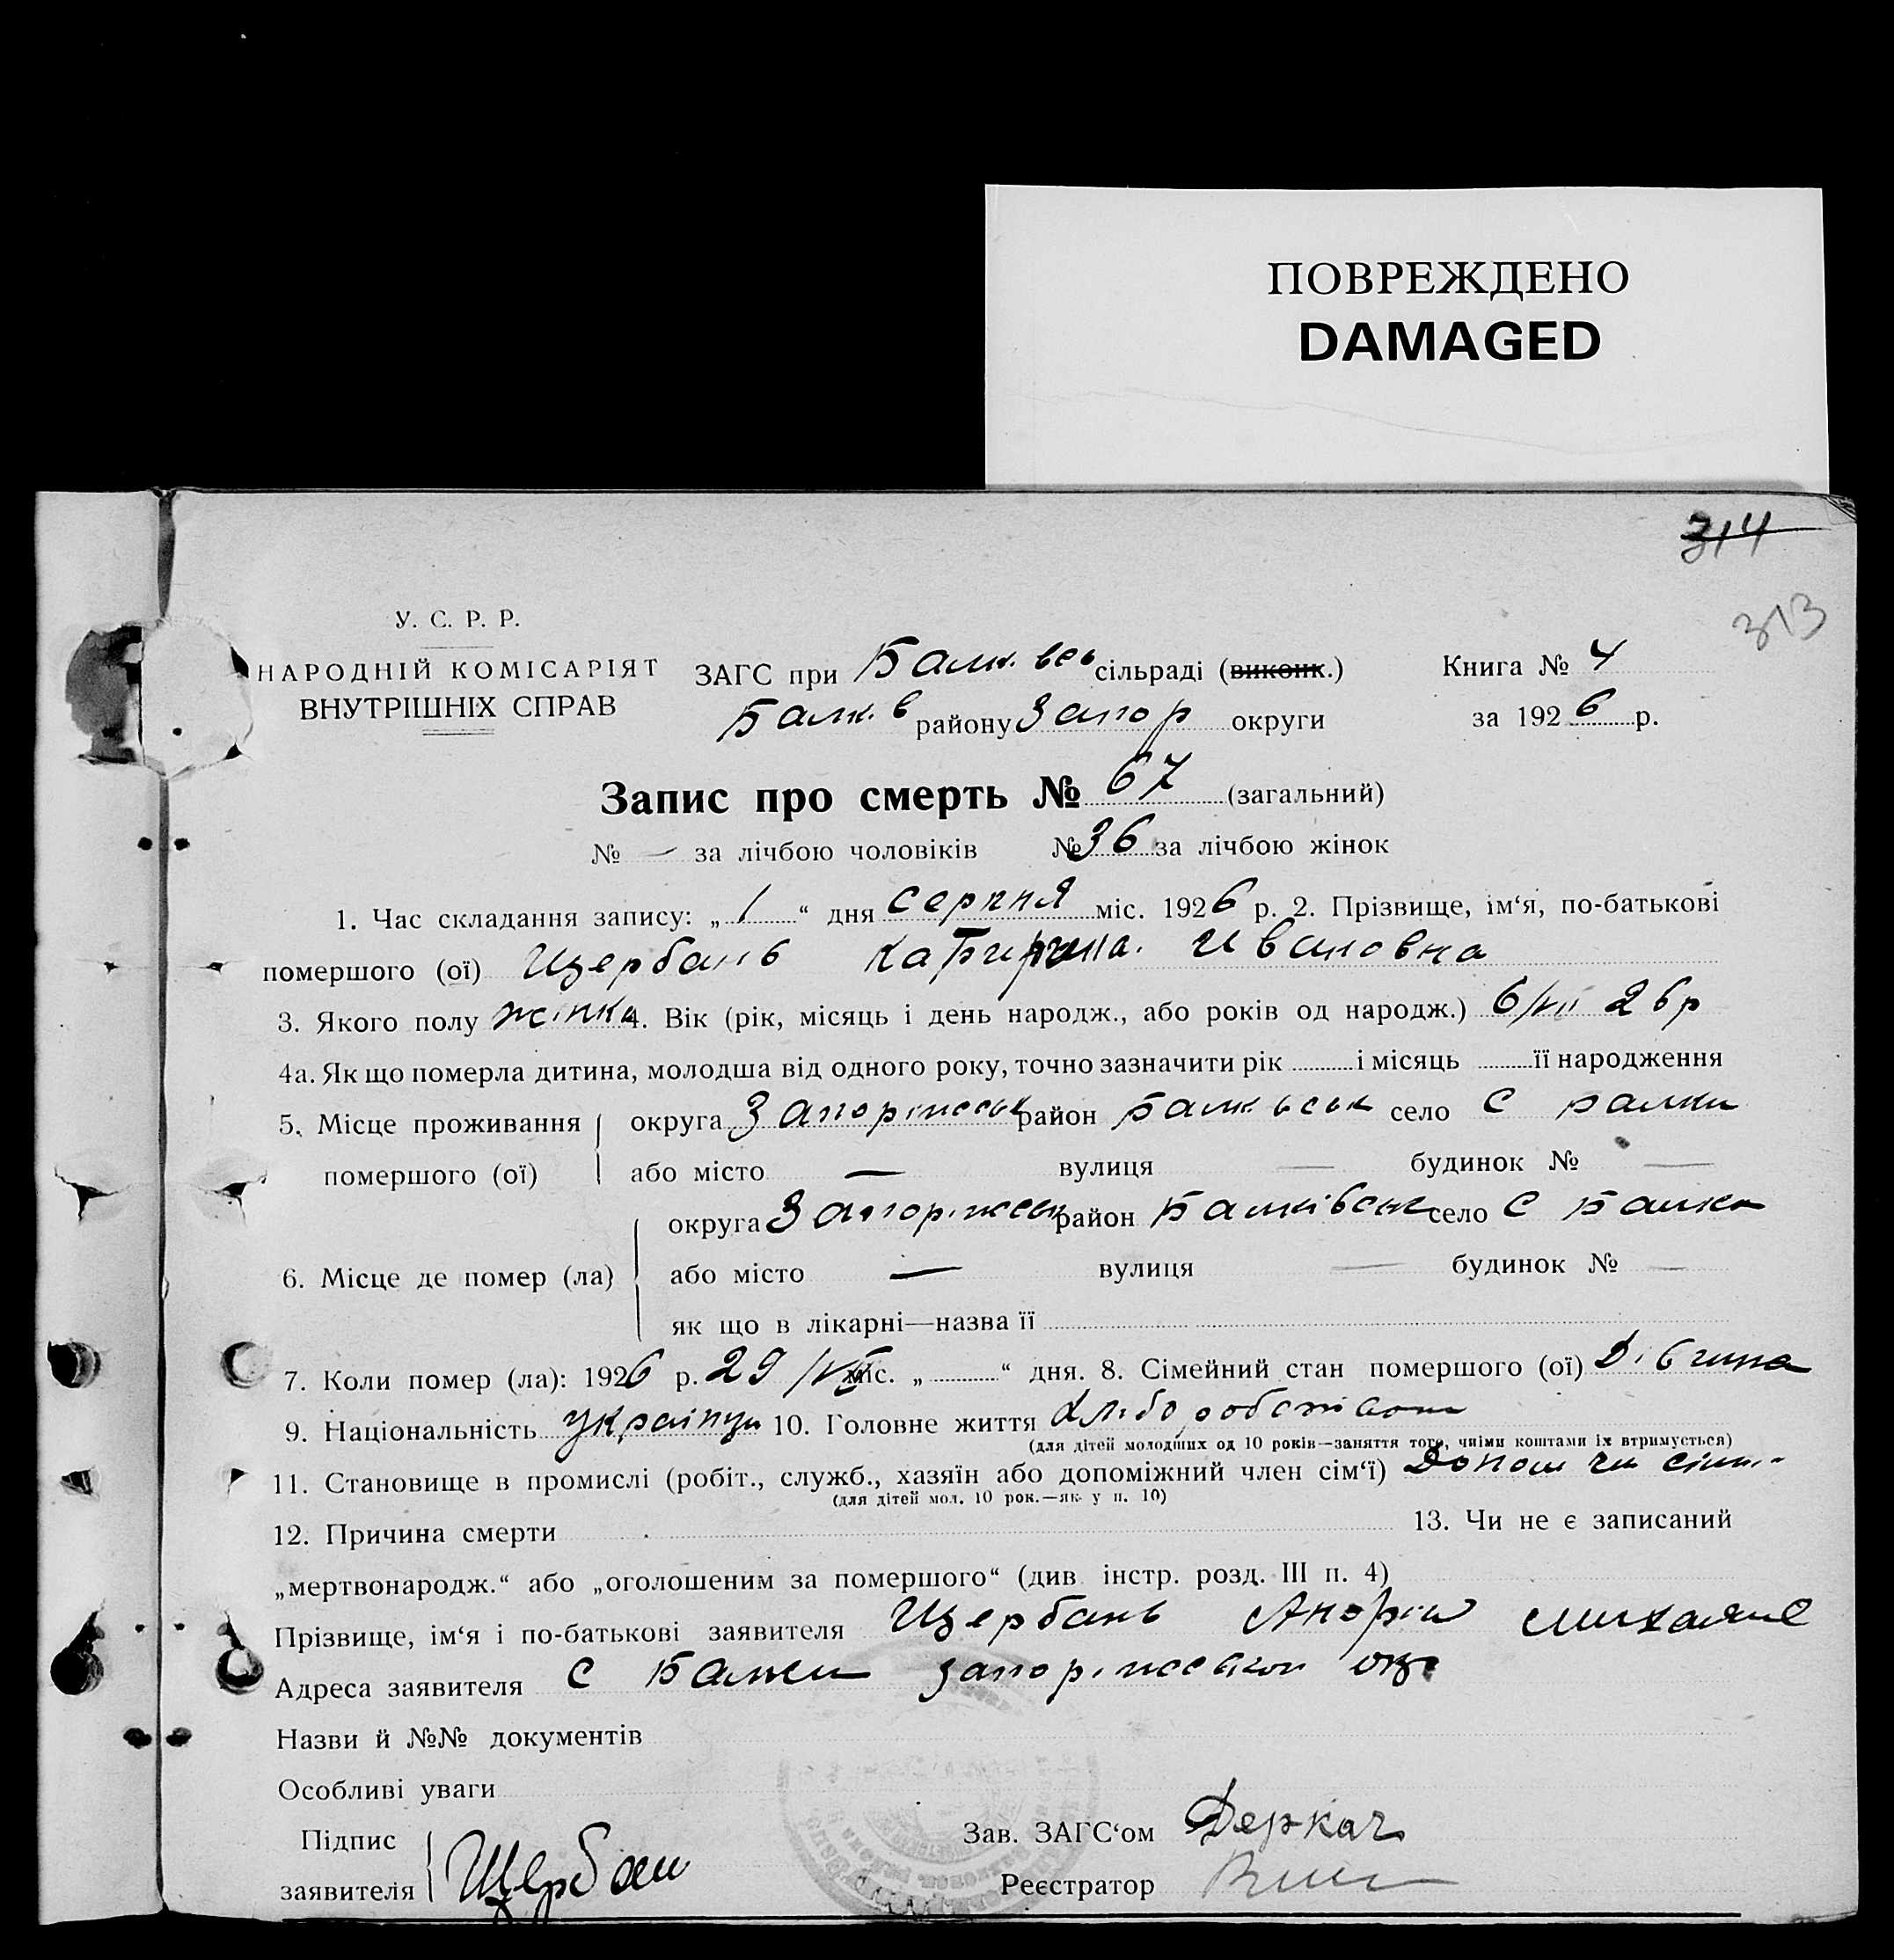 ПОВРЕЖДЕНО
DAMAGED
314
313
У. С. Р. Р.
НАРОДНІЙ КОМІСАРІЯТ
ВНУТРІШНІХ СПРАВ
ЗАГС при Балк. всь сільраді (виконк.) Книга № 4
Балк. в району Запор округи за 1926 р.
Запис про смерть № 67 (загальний)
№ — за лічбою чоловіків № 36 за лічбою жінок
1. Час складання запису: „ 1 “ дня серпня міс. 1926 р. 2. Прізвище, ім‘я, по-батькові
помершого (ої) Щербань Катирина Ивановна
3. Якого полу жінка 4. Вік (рік, місяць і день народж., або років од народж.) 6/VII 26 р
4а. Як що померла дитина, молодша від одного року, точно зазначити рік і місяць її народження
5. Місце проживання помершого (ої) округа Запоріжськ район Балківськ село С Балки
або місто — вулиця — будинок № —
6. Місце де помер (ла) округа Запоріжськ район Балківськ село С Балки
або місто — вулиця — будинок № —
як що в лікарні—назва її
7. Коли помер (ла): 1926 р. 29/VII міс. „ “ дня. 8. Сімейний стан помершого (ої) Дівчина
9. Національність 10. Головне життя
(для дітей молодших од 10 років—заняття того, чиїми коштами їх втримується)
11. Становище в промислі (робіт., служб., хазяїн або допоміжний член сім‘ї) Допом чл сім..
(для дітей мол. 10 рок.—як у п. 10)
12. Причина смерти 13. Чи не є записаний
„мертвонародж.“ або „оголошеним за помершого“ (див. інстр. розд. III п. 4)
Прізвище, ім‘я і по-батькові заявителя Щербань
Адреса заявителя С Балки
Назви й №№ документів
Особливі уваги
Підпис заявителя Щербан
Зав. ЗАГС‘ом Деркач
Реєстратор